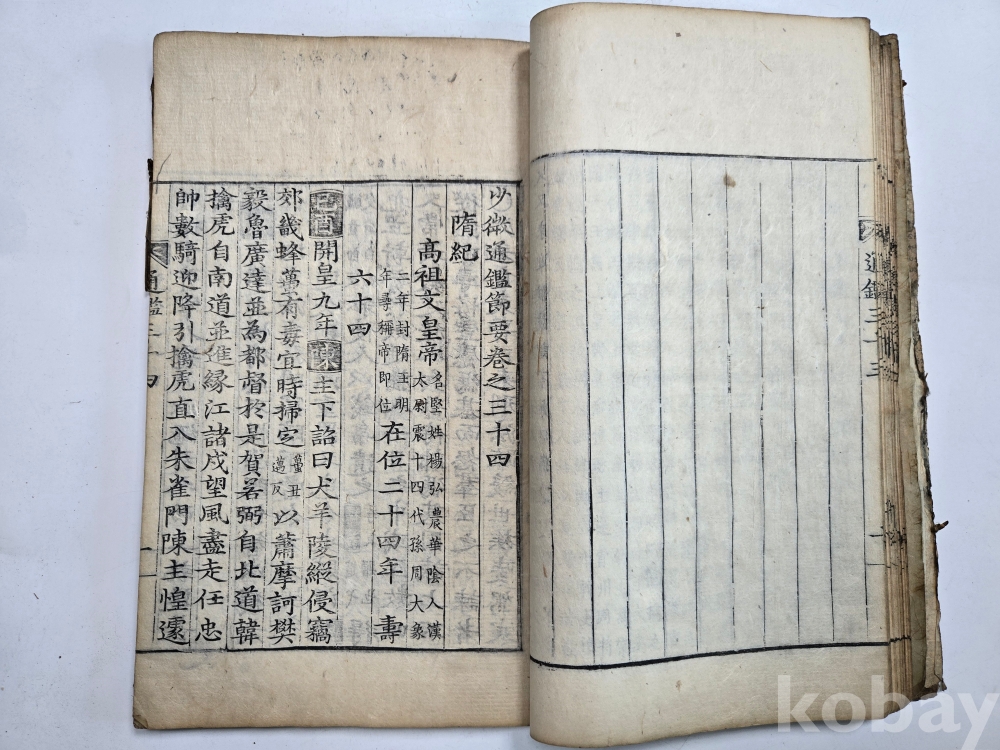 通鑑三十三
少微通鑑節要卷之三十四
隋紀
高祖文皇帝名堅姓楊弘農華陰人漢太尉震十四代孫周大象二年封隋王明年尋稱帝即位在位二十四年壽
六十四
己酉開皇九年陳主下詔曰犬羊陵縱侵竊
郊畿蜂蠆有毒宜時掃定蠆丑邁反以蕭摩訶樊
毅魯廣達並為都督於是賀若弼自北道韓
擒虎自南道並進緣江諸戍望風盡走任忠
帥數騎迎降引擒虎直入朱雀門陳主惶遽
通鑑三十四
kobay